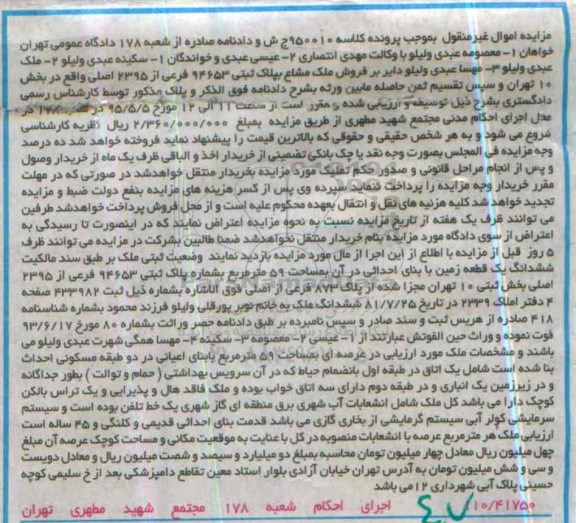 مزایده اموال غیرمنقول بموجب پرونده کلاسه ۹۵۰۰۱۰ج ش و دادنامه صادره از شعبه ۱۷۸ دادگاه عمومی تهران
خواهان ۱- معصومه عبدی ولیلو با وکالت مهدی انتصاری ۲- عیسی عبدی و خواندگان ۱- سکینه عبدی ولیلو ۲- ملک
عبدی ولیلو ۳- مهسا عبدی ولیلو دایر بر فروش ملک مشاع بپلاک ثبتی ۹۴۶۵۳ فرعی از ۲۳۹۵ اصلی واقع در بخش
۱۰ تهران و سپس تقسیم ثمن حاصله مابین ورثه بشرح دادنامه فوق الذکر و پلاک مذکور توسط کارشناس رسمی
دادگستری بشرح ذیل توصیف و ارزیابی شده و مقرر است از ساعت ۱۱ الی ۱۲ مورخ ۹۵/۵/۵ در شعبه ۱۷۸ در
محل اجرای احکام مدنی مجتمع شهید مطهری از طریق مزایده بمبلغ ۲/۳۶۰/۰۰۰/۰۰۰ ریال نظریه کارشناسی
شروع می شود و به هر شخص حقیقی و حقوقی که بالاترین قیمت را پیشنهاد نماید فروخته خواهد شد ده درصد
وجه مزایده فی المجلس بصورت وجه نقد یا چک بانکی تضمینی از خریدار اخذ و الباقی ظرف یک ماه از خریدار وصول
و پس از انجام مراحل قانونی و صدور حکم تملیک مورد مزایده بخریدار منتقل خواهدشد در صورتی که در مهلت
مقرر خریدار وجه مزایده را پرداخت ننماید سپرده وی پس از کسر هزینه های مزایده بنفع دولت ضبط و مزایده
تجدید خواهد شد کلیه هزینه های نقل و انتقال بعهده محکوم علیه است و از محل فروش پرداخت خواهدشد طرفین
می توانند ظرف یک هفته از تاریخ مزایده نسبت به نحوه مزایده اعتراض نمایند که در اینصورت تا رسیدگی به
اعتراض از سوی دادگاه مورد مزایده بنام خریدار منتقل نخواهدشد ضمنا طالبین بشرکت در مزایده می توانند ظرف
۵ روز قبل از مزایده با اطلاع از این اجرا از مال مورد مزایده بازدید نمایند وضعیت ثبتی ملک بر طبق سند مالکیت
ششدانگ یک قطعه زمین با بنای احداثی در آن بمساحت ۵۹ مترمربع بشماره پلاک ثبتی ۹۴۶۵۳ فرعی از ۲۳۹۵
اصلی بخش ثبتی ۱۰ تهران مجزا شده از پلاک ۸۷۳ فرعی از اصلی فوق الاشاره بشماره ذیل ثبت ۴۳۳۹۸۲ صفحه
۴ دفتر املاک ۲۳۳۹ در تاریخ ۸۱/۷/۲۵ ششدانگ ملک به خانم توبر پورقلی ولیلو فرزند محمود بشماره شناسنامه
۴۱۸ صادره از هریس ثبت و سند صادر و سپس نامبرده بر طبق دادنامه حصر وراثت بشماره ۸۰ مورخ ۹۳/۶/۱۷
فوت نموده و وراث حین الفوتش عبارتند از ۱- عیسی ۲- معصومه ۳- سکینه ۴- مهسا همگی شهرت عبدی ولیلو می
باشند و مشخصات ملک مورد ارزیابی در عرصه ای بمساحت ۵۹ مترمربع بابنای اعیانی در دو طبقه مسکونی احداث
بنا شده است شامل یک اتاق در طبقه اول بانضمام حیاط که در آن سرویس بهداشتی ( حمام و توالت ) بطور جداگانه
و در زیرزمین یک انباری و در طبقه دوم دارای سه اتاق خواب بوده و ملک فاقد هال و پذیرایی و یک تراس بالکن
کوچک دارا می باشد کل ملک شامل انشعابات آب شهری برق منطقه ای گاز شهری یک خط تلفن بوده است و سیستم
سرمایشی کولر آبی سیستم گرمایشی از بخاری گازی می باشد قدمت بنای احداثی قدیمی و کلنگی و ۴۵ ساله است
ارزیابی ملک هر مترمربع عرصه با انشعابات منصوبه در کل با عنایت به موقعیت مکانی و مساحت کوچک عرصه آن مبلغ
چهل میلیون ریال معادل چهار میلیون تومان محاسبه بمبلغ دو میلیارد و سیصد و شصت میلیون ریال و معادل دویست
و سی و شش میلیون تومان به آدرس تهران خیابان آزادی بلوار استاد معین تقاطع دامپزشکی بعد از خ سلیمی کوچه
حسینی پلاک آبی شهرداری ۱۲ می باشد
۱۰/۴۱۷۵۰ اجرای احکام شعبه ۱۷۸ مجتمع شهید مطهری تهران